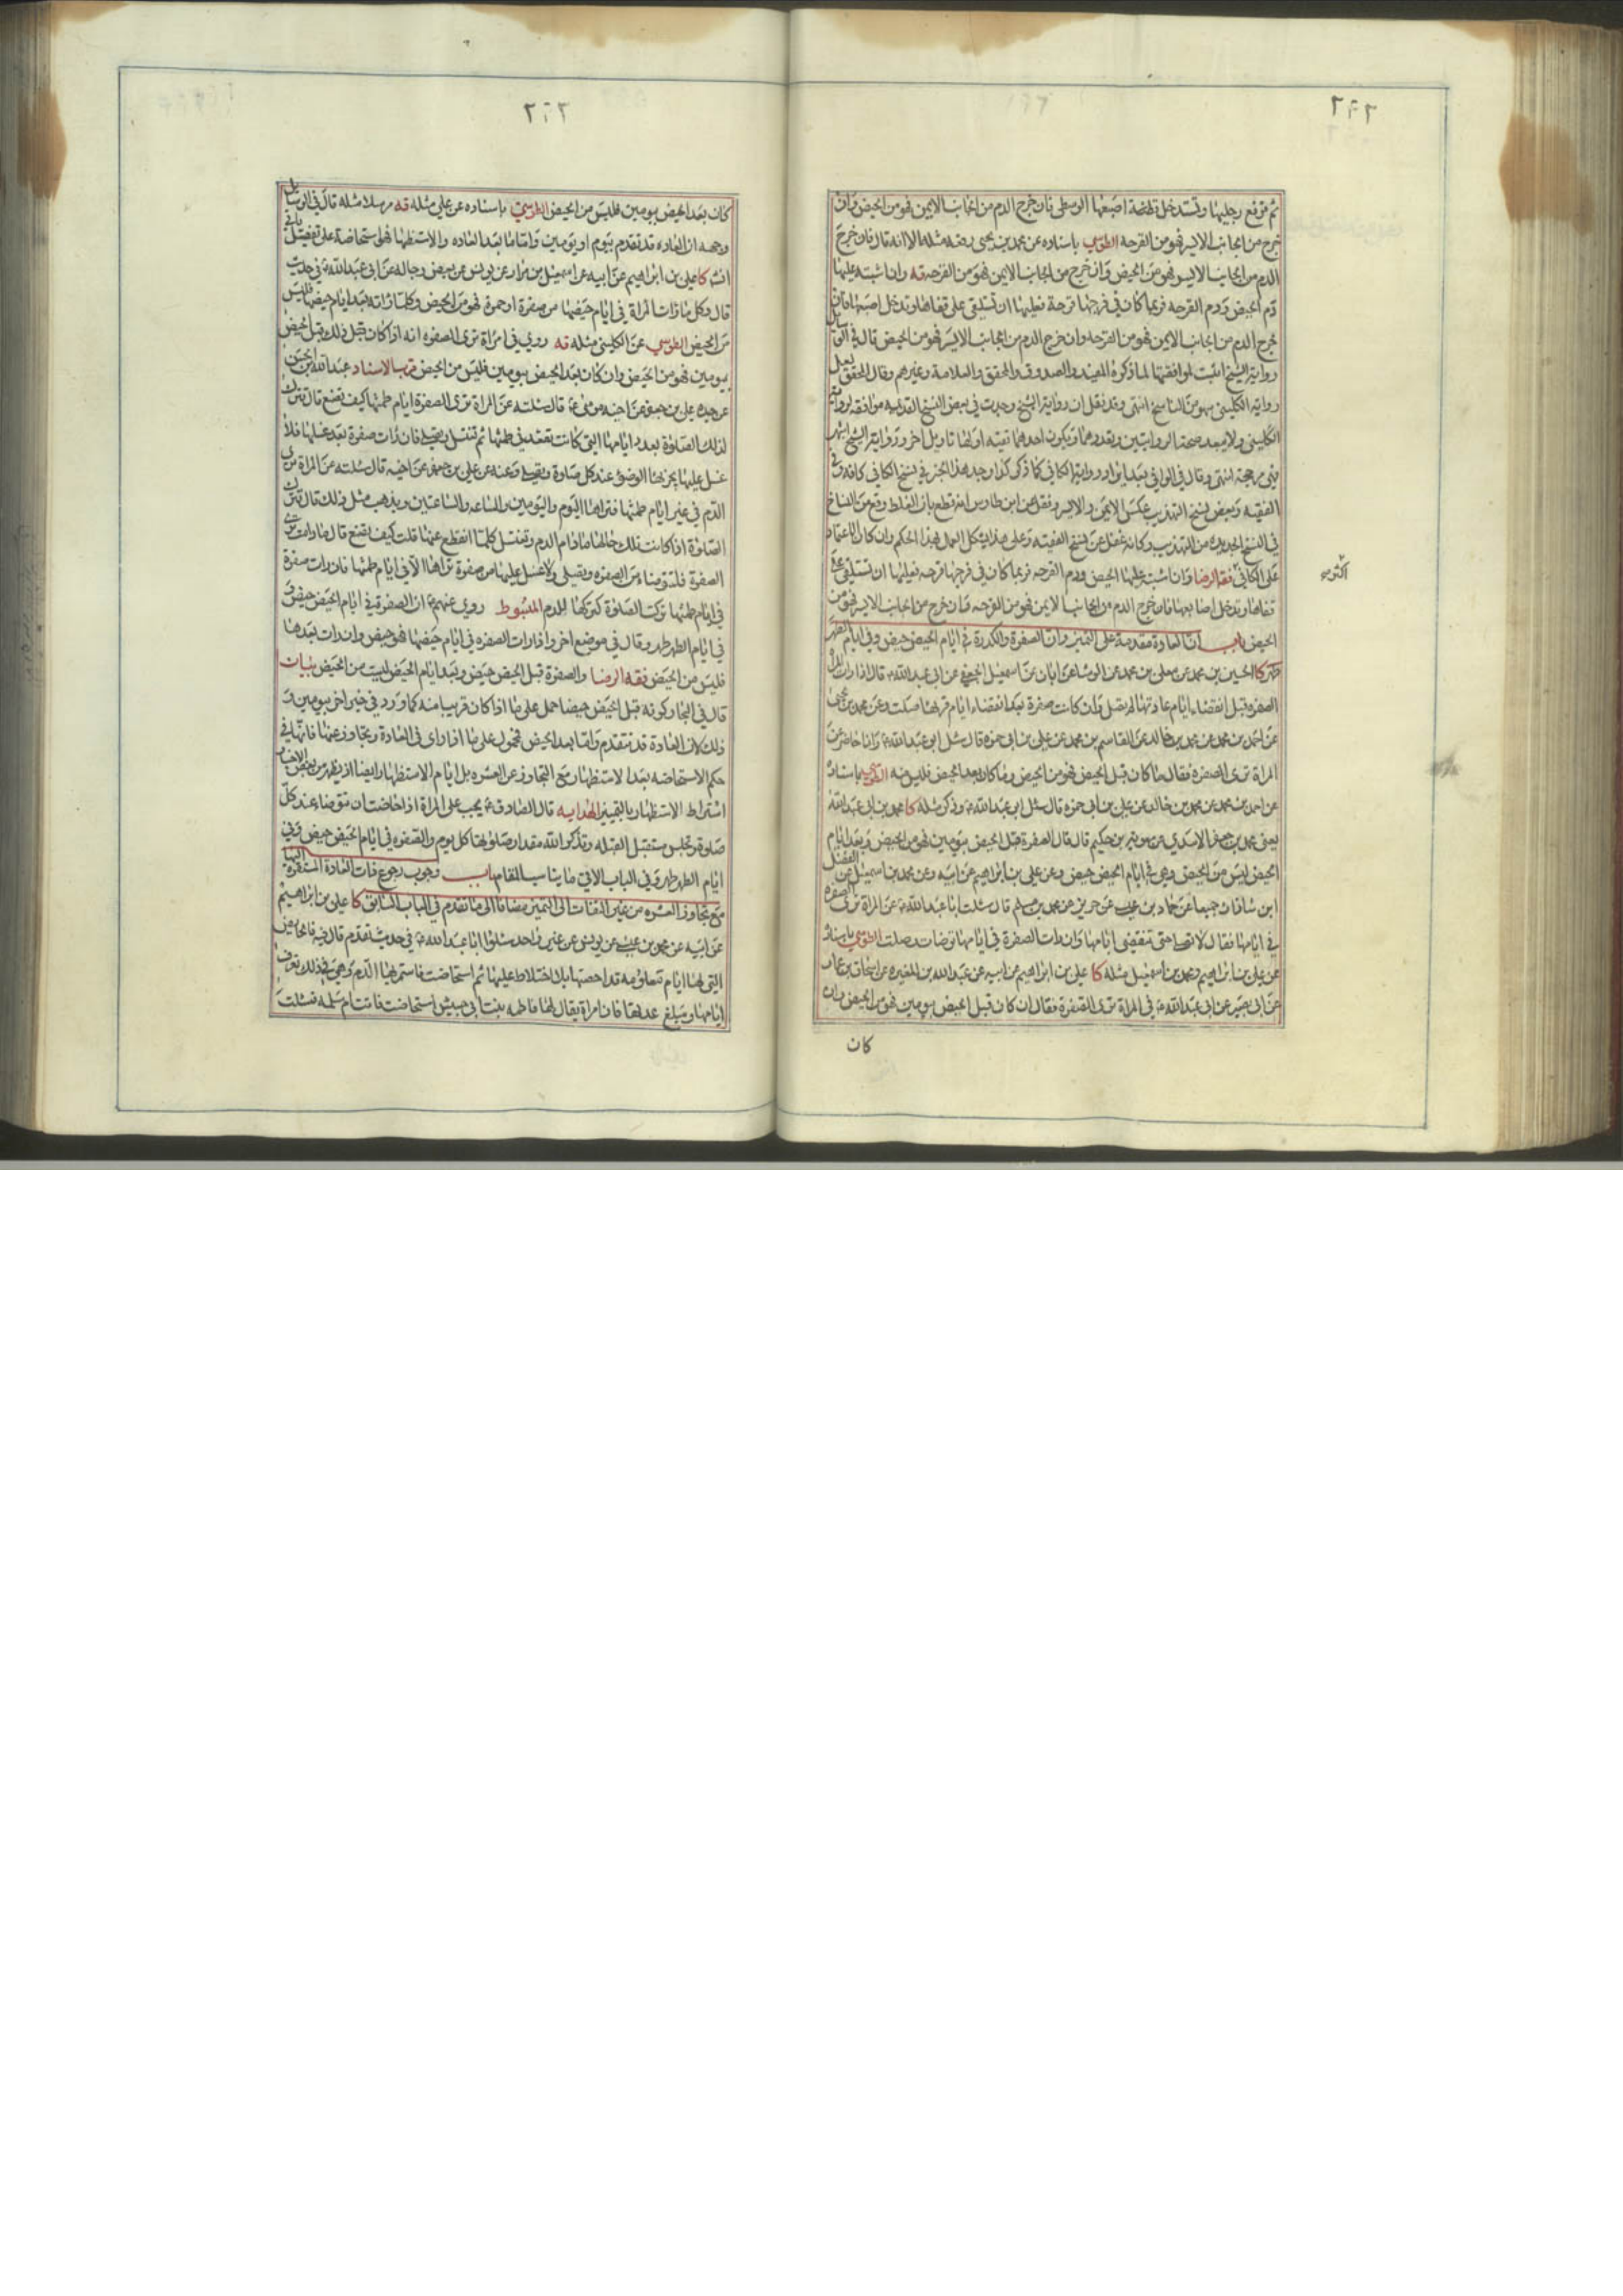 ٢٩٢
ثم ترفع رجليها وتستدخل قطنة اصبعها الوسطى فان خرج الدم من الجانب الايمن فهو من الحيض وان
خرج من الجانب الايسر فهو من القرحه الطوسي باسناده عن محمد بن يحيى رفعه مثله الا انه قال فان خرج
الدم من الجانب الايسر فهو من الحيض وان خرج من الجانب الايمن فهو من القرحه قه وان اشتبه عليها
دم الحيض ودم القرحه فربما كان في فرجها قرحة فعليها ان تستلقي على قفاها وتدخل اصبعها فان
خرج الدم من الجانب الايمن فهو من القرحه وان خرج الدم من الجانب الايسر فهو من الحيض قال في الوسائل
رواية الشيخ اثبت لموافقتها لما ذكره المفيد والصدوق والمحقق والعلامة وغيرهم وقال المحقق لعل
رواية الكليني سهو من الناسخ انتهى وقد نقل ان رواية الشيخ وجدت في بعض النسخ القديمه موافقه لرواية
الكليني ولا يبعد صحة الروايتين وتعددهما وتكون احدهما تقيه او لها تاويل اخر ورواية الشيخ اشهر
فهي مرجحة انتهى وقال في الوافي بعد ايراد رواية الكافي كما ذكر كذا وجد هذا الخبر في نسخ الكافي كافة وفي
الفقيه وبعض نسخ التهذيب عكس الايمن والايسر ونقل عن ابن طاوس انه قطع بان الغلط وقع من النساخ
في النسخ الجديدة من التهذيب وكانه غفل عن نسخ الفقيه وعلى هذا يشكل العمل بهذا الحكم وان كان الاعتماد
على الكافي اكثر فقه الرضا وان اشتبه عليها الحيض ودم القرحه فربما كان في فرجها قرحه فعليها ان تستلقي على
قفاها وتدخل اصابعها فان خرج الدم من الجانب الايمن فهو من القرحه وان خرج من الجانب الايسر فهو من
الحيض باب ان العادة مقدمة على التميز وان الصفرة والكدرة في ايام الحيض حيض وفي ايام الطهر
طهر كا الحسين بن محمد عن معلى بن محمد عن الوشا عن ابان عن اسمعيل الجعفي عن ابي عبد الله ع قال اذا رات المراة
الصفره قبل انقضاء ايام عادتها لم تصل وان كانت صفرة بعد انقضاء ايام قرئها صلت وعن محمد بن يحيى
عن احمد بن محمد عن محمد بن خالد عن القاسم بن محمد عن علي بن ابي حمزه قال سئل ابو عبد الله ع وانا حاضر عن
المراة ترى الصفرة فقال ما كان قبل الحيض فهو من الحيض وما كان بعد الحيض فليس منه الطوسي باسناده
عن احمد بن محمد عن محمد بن خالد عن علي بن ابي حمزه قال سئل ابو عبد الله ع وذكر مثله كا محمد بن ابي عبد الله
يعني محمد بن جعفر الاسدي عن معويه بن حكيم قال قال الصفرة قبل الحيض بيومين فهو من الحيض وبعد ايام
الحيض ليس من الحيض وهي في ايام الحيض حيض وعن علي بن ابراهيم عن ابيه وعن محمد بن اسمعيل عن الفضل
ابن شاذان جميعا عن حماد بن عيسى عن حريز عن محمد بن مسلم قال سئلت ابا عبد الله ع عن المراة ترى الصفرة
في ايامها فقال لا تصل حتى تنقضي ايامها وان رات الصفرة في غير ايامها توضات وصلت الطوسي باسناده
عن علي بن ابراهيم ومحمد بن اسمعيل مثله كا علي بن ابراهيم عن ابيه عن عبد الله بن المغيره عن اسحاق بن عمار
عن ابي بصير عن ابي عبد الله ع في المراة ترى الصفرة فقال ان كان قبل الحيض بيومين فهو من الحيض وان
كان
اكثر صح
كان بعد الحيض بيومين فليس من الحيض الطوسي باسناده عن علي مثله قه مرسلا مثله قال في الوسائل
وجهه ان العاده قد تقدم بيوم او يومين واما ما بعد العاده والاستظهار فهو استحاضة على تفصيل ياتي
انشا كا علي بن ابراهيم عن ابيه عن اسمعيل بن مرار عن يونس عن بعض رجاله عن ابي عبد الله ع في حديث
قال وكل ما رات المراة في ايام حيضها من صفرة او حمرة فهو من الحيض وكلما راته بعد ايام حيضها فليس
من الحيض الطوسي عن الكليني مثله قه روي في امراة ترى الصفره انه اذا كان قبل ذلك وقبل الحيض
بيومين فهو من الحيض وان كان بعد الحيض بيومين فليس من الحيض قرب الاسناد عبد الله بن الحسن
عن جده علي بن جعفر عن اخيه موسى ع قال سئلته عن المراة ترى الصفرة ايام طمثها كيف تصنع قال تترك
لذلك الصلوة بعدد ايامها التي كانت تقعد في طمثها ثم تغتسل وتصلي فان رات صفرة بعد غسلها فلا
غسل عليها يجزئها الوضوء عند كل صلوة وتصلي وعنه عن علي بن جعفر عن اخيه قال سئلته عن المراة ترى
الدم في غير ايام طمثها فتراها اليوم واليومين والساعه والساعتين ويذهب مثل ذلك قال تترك
الصلوة اذا كانت تلك حالها ما دام الدم وتغتسل كلما انقطع عنها قلت كيف تصنع قال ما دامت ترى
الصفرة فلتتوضاء من الصفره وتصلي ولا غسل عليها من صفرة تراها الا في ايام طمثها فان رات صفرة
في ايام طمثها تركت الصلوة كتركها للدم المبسوط روي عنهم ع ان الصفرة في ايام الحيض حيض و
في ايام الطهر طهر وقال في موضع اخر واذا رات الصفره في ايام حيضها فهو حيض وان رات بعدها
فليس من الحيض فقه الرضا والصفرة قبل الحيض حيض وبعد ايام الحيض ليست من الحيض بيان
قال في البحار كونه قبل الحيض حيضا حمل على ما اذا كان قريبا منه كما ورد في خبر اخر بيومين و
ذلك لان العادة قد تتقدم واما بعد الحيض فمحمول على ما اذا راى في العادة وتجاوز عنها فانها في
حكم الاستحاضه بعد الاستظهار مع التجاوز عن العشره بل ايام الاستظهار ايضا اذ يظهر من بعض الاخبار
اشتراط الاستظهار بالتميز الهدايه قال الصادق ع يجب على المراة اذا حاضت ان تتوضا عند كل
صلوة وتجلس مستقبل القبله وتذكر الله مقدار صلوتها كل يوم والصفره في ايام الحيض حيض وفي
ايام الطهر طهر وفي الباب الاتي ما يناسب المقام باب وجوب رجوع ذات العادة المستقرة اليها
مع تجاوز العشره من غير التفات الى التميز مضافا الى ما تقدم في الباب السابق كا علي بن ابراهيم
عن ابيه عن محمد بن عيسى عن يونس عن غير واحد سئلوا ابا عبد الله ع في حديث تقدم قال فيه فالحائض
التي لها ايام معلومه قد احصتها بلا اختلاط عليها ثم استحاضت فاستمر بها الدم وهي في ذلك تعرف
ايامها ومبلغ عددها فان امراة يقال لها فاطمه بنت ابي حبيش استحاضت فاتت ام سلمه فسئلت